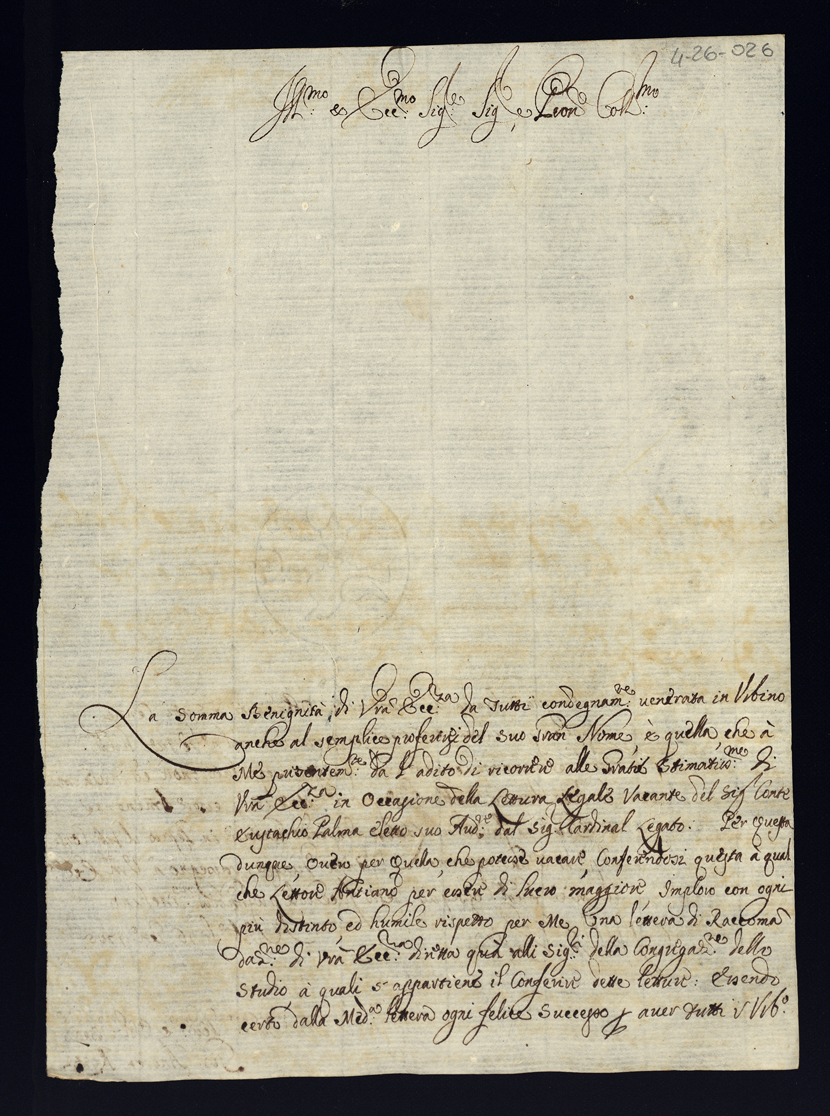 4-26-026
Ill.mo et Ecc.mo Sig.re Sig.re e Pron Coll.mo
La somma Benignità di Vrã Ecc.za da tutti condegnam.te venerata in Urbino
anche al semplice profertisi del suo gran Nome è quella che à
Me presentem.te da l'adito di ricorrere alle gratie stimatiss.me di
Vrã Ecc.za in Occasione della Lettura Legale Vacante del Sig.r Conte
Eustachio Palma eletto suo Aud.re dal Sig.r Cardinal Legato. Per questa
dunque, overo per quella, che potesse vacare Conferendosi questa à qual
che Lettore Antiano per essere di lucro maggiore Imploro con ogni
più distinto, ed humile rispetto per Me Una lettera di Raccoman
daz.ne di Vrã Ecc.za diretta quà alli Sig.ri della Congregaz.ne dello
Studio, à quali s'appartiene il Conferire dette letture: Essendo
certo dalla Med.a lettera ogni felice Successo p aver tutti i Urb.o